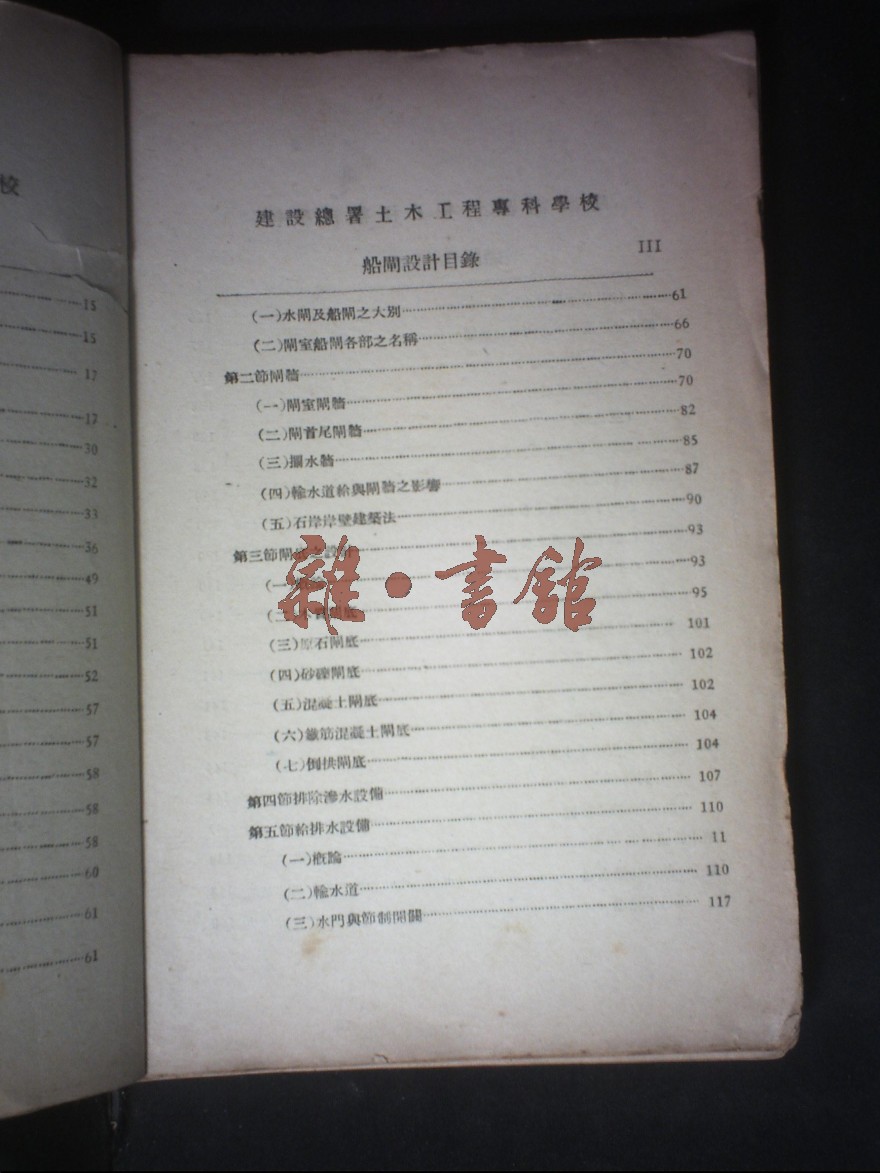 校
15
15
17
17
30
32
33
36
49
51
51
52
57
57
58
58
58
60
61
61
建設總署土木工程專科學校
船閘設計目錄 III
(一)水閘及船閘之大別 61
(二)閘室船閘各部之名稱 66
第二節閘牆 70
(一)閘室閘牆 70
(二)閘首尾閘牆 82
(三)攔水牆 85
(四)輸水道給與閘牆之影響 87
(五)石岸岸壁建築法 90
第三節閘底之設計 93
(一) 93
(二)木 閘底 95
(三)原石閘底 101
(四)砂礫閘底 102
(五)混凝土閘底 102
(六)鐵筋混凝土閘底 104
(七)倒拱閘底 104
第四節排除滲水設備 107
第五節給排水設備 110
(一)概論 11
(二)輸水道 110
(三)水門與節制開關 117
雜·書館